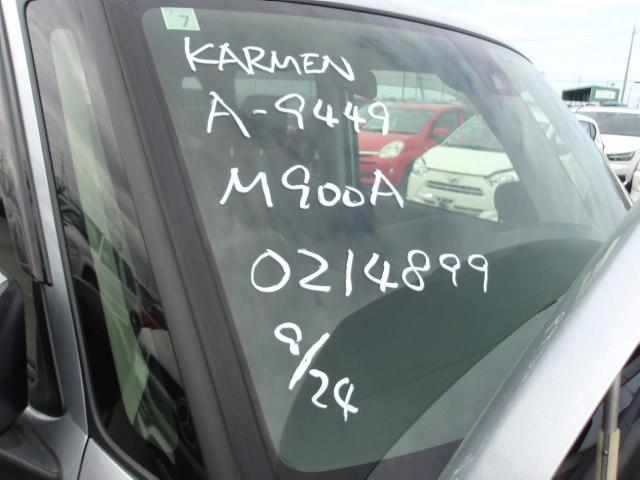 7
KARMEN
A-9449
M900A
0214899
9/24